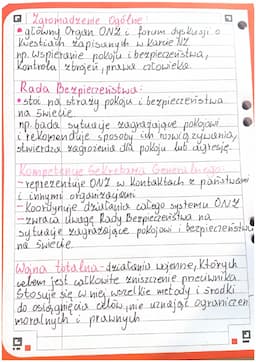 Zgromadzenie Ogólne:
• główny Organ ONZ i forum dyskusji o
kwestiach zapisanych w Karcie NZ
np. wspieranie pokoju i bezpieczeństwa,
kontrola zbrojeń, prawa człowieka.
Rada Bezpieczeństwa:
• stoi na straży pokoju i bezpieczeństwa
na świecie.
np. bada sytuacje zagrażające pokojowi
i rekomenduje sposoby ich rozwiązywania,
stwierdza zagrożenia dla pokoju lub agresję.
Kompetencje Sekretarza Generalnego:
- reprezentuje ONZ w kontaktach z państwami
i innymi organizacjami
- koordynuje działania całego systemu ONZ
- zwraca uwagę Rady Bezpieczeństwa na
sytuacje zagrażające pokojowi i bezpieczeństwu
na świecie.
Wojna totalna - działania wojenne, których
celem jest całkowite zniszczenie przeciwnika.
Stosuje się w niej wszelkie metody i środki
do osiągnięcia celów, nie uznając ograniczeń
moralnych i prawnych